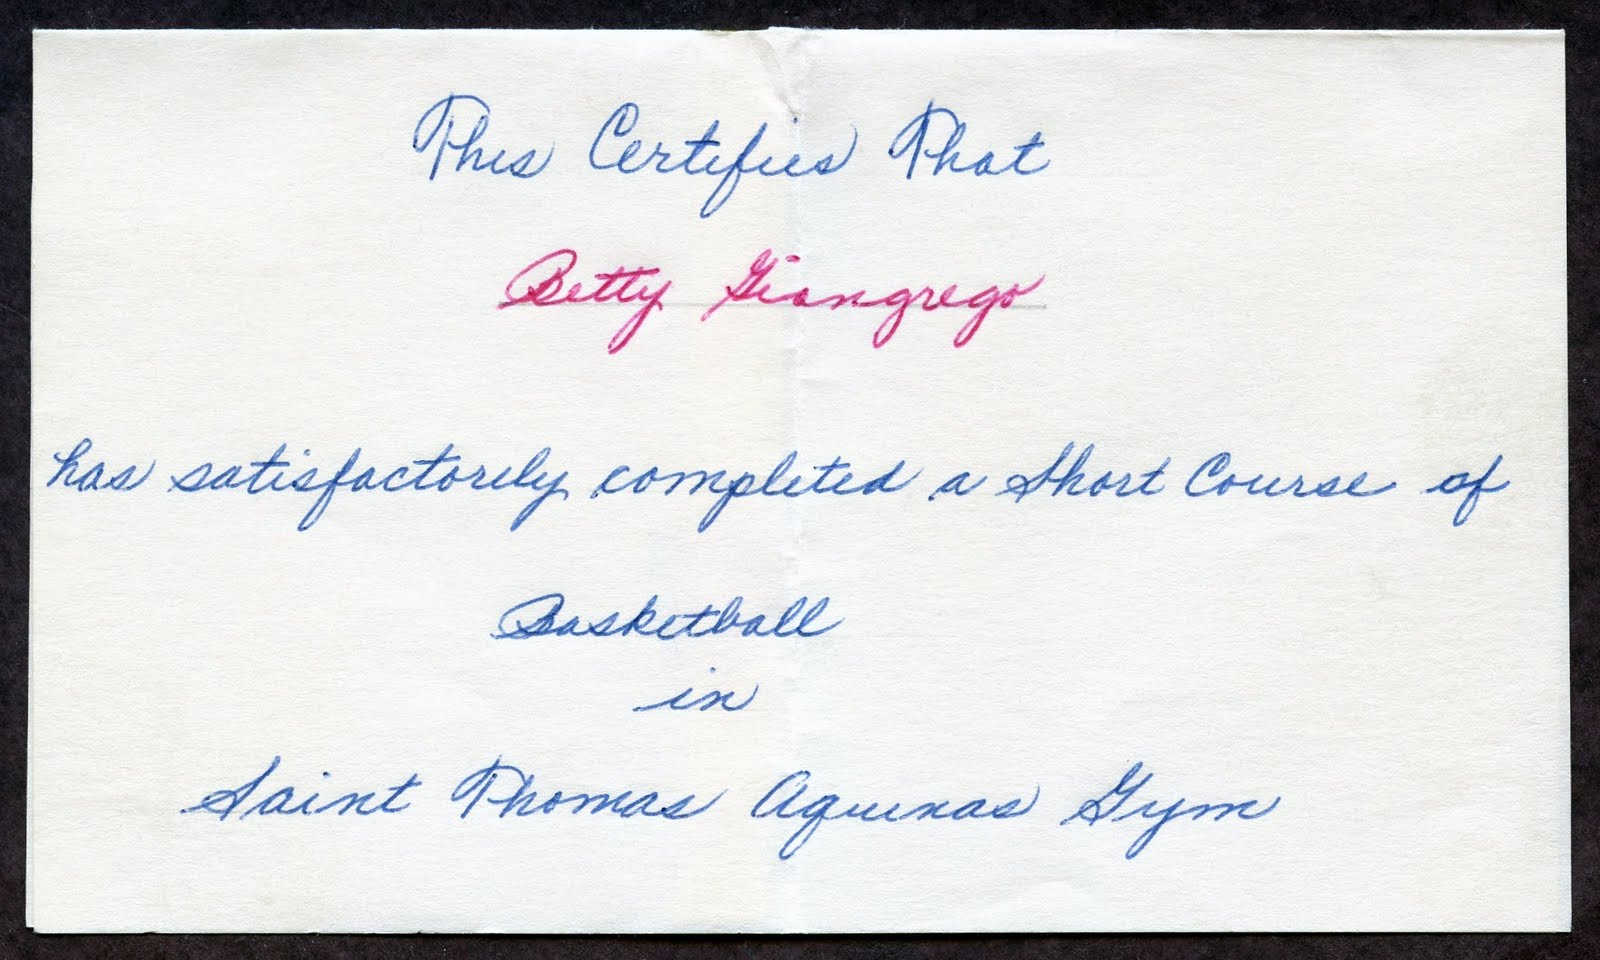 This Certifies That
Betty Giangrego
has satisfactorily completed a Short Course of
Basketball
in
Saint Thomas Aquinas Gym